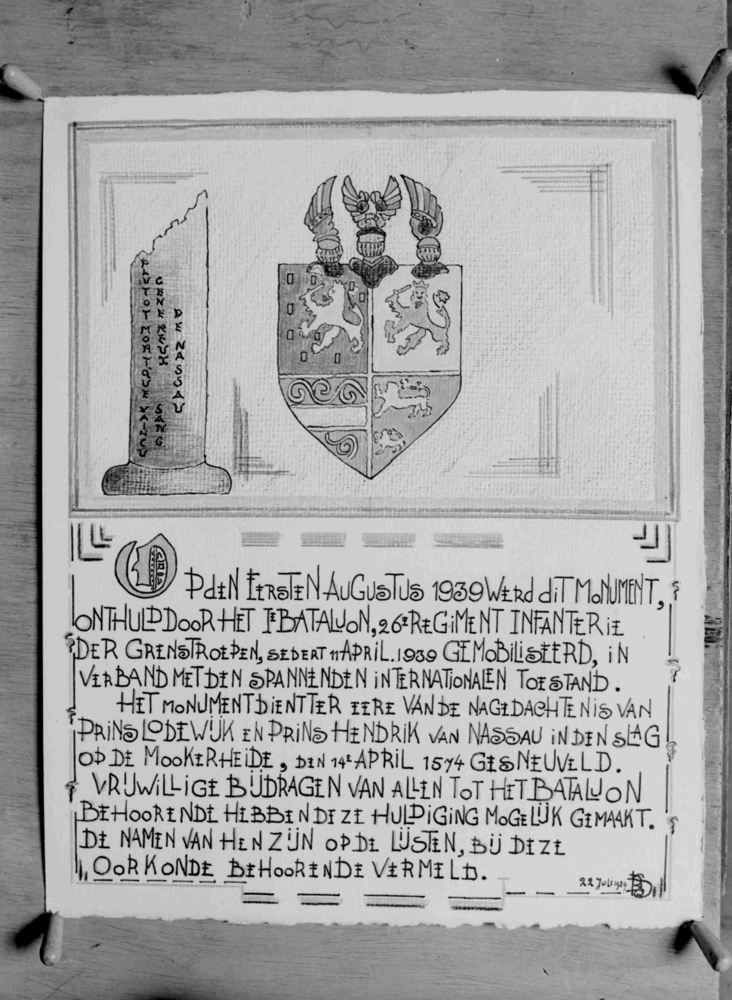 PLUTOT MORT QUE VAINCU
GENEREUX SANG
DE NASSAU
OP dEN EERSTEN AUGUSTUS 1939 WERd diT MONUMENT,
ONTHULD DOOR HET Ie BATALJON, 26e REGIMENT INFANTERIE
DER GRENSTROEPEN, SEDERT 11 APRIL. 1939 GEMOBILISEERD, iN
VERBAND MET DEN SPANNENDEN iNTERNATIONALEN TOESTAND.
HET MONUMENT DIENT TER EERE VAN DE NAGEDACHTENIS VAN
PRINS LODEWIJK EN PRINS HENDRIK VAN NASSAU iN DEN SLAG
OP DE MOOKERHEIDE, DEN 14e APRIL 1574 GESNEUVELD.
VRIJWILLIGE BIJDRAGEN VAN ALLEN TOT HET BATALJON
BEHOORENDE HEBBEN DEZE HULDIGING MOGELIJK GEMAAKT.
DE NAMEN VAN HEN ZIJN OP DE LIJSTEN, BIJ DEZE
OORKONDE BEHOORENDE VERMELD.
22 Juli 1939